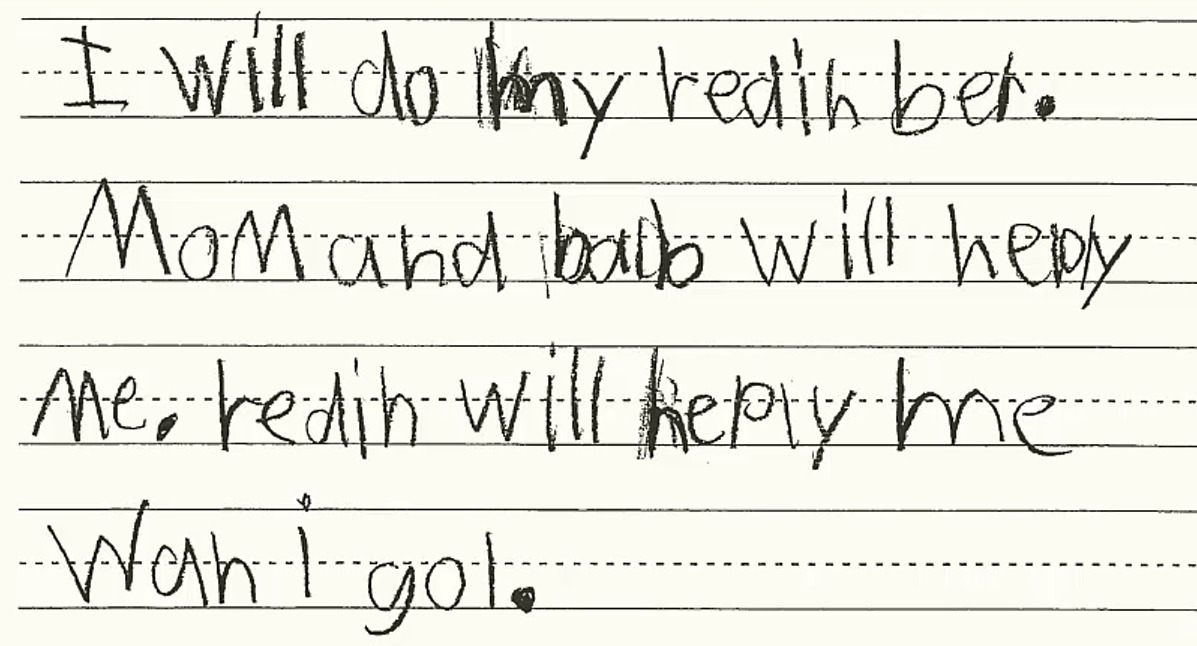 I will do my redin ber.
MoM and bab will heply
Me. redin will heply me
Wan i gol.